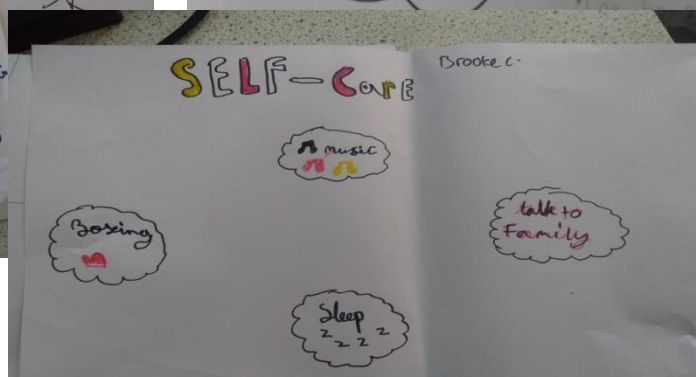 SELF-CarE
Brooke C.
music
Boxing
talk to
Family
Sleep
z z z z